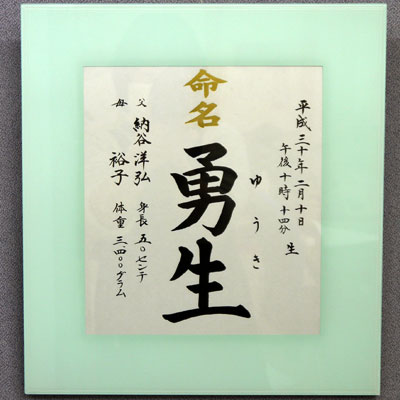 平成三十年二月十日
午後十時十四分 生
ゆうき
命名
勇生
身長 五〇センチ
体重 三、四〇〇グラム
父 納谷洋弘
母 裕子